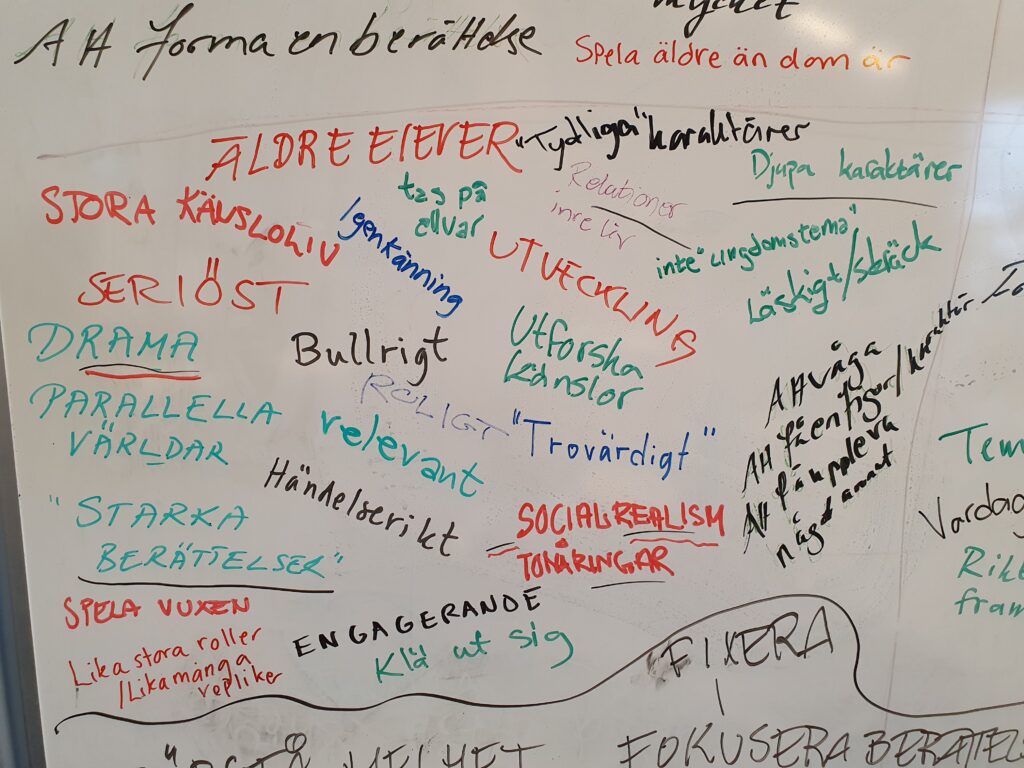 mycket
Att forma en berättelse
Spela äldre än dom är
ÄLDRE ELEVER
"Tydliga" karaktärer
Djupa karaktärer
Relationer
inre liv
tas på
allvar
STORA KÄNSLOLIV
Igenkänning
UTVECKLING
inte "ungdomstema"
Läskigt/skräck
SERIÖST
DRAMA
Bullrigt
Utforska
känslor
Att våga
Att få en figur/karaktär
Att få uppleva
något annat
PARALLELLA
VÄRLDAR
ROLIGT
relevant
"Trovärdigt"
Händelserikt
"STARKA
BERÄTTELSER"
SOCIALREALISM
TONÅRINGAR
Vardag
SPELA VUXEN
Lika stora roller
/Lika många
repliker
ENGAGERANDE
Klä ut sig
FIXERA
HELHET
FOKUSERA BERÄTTEL